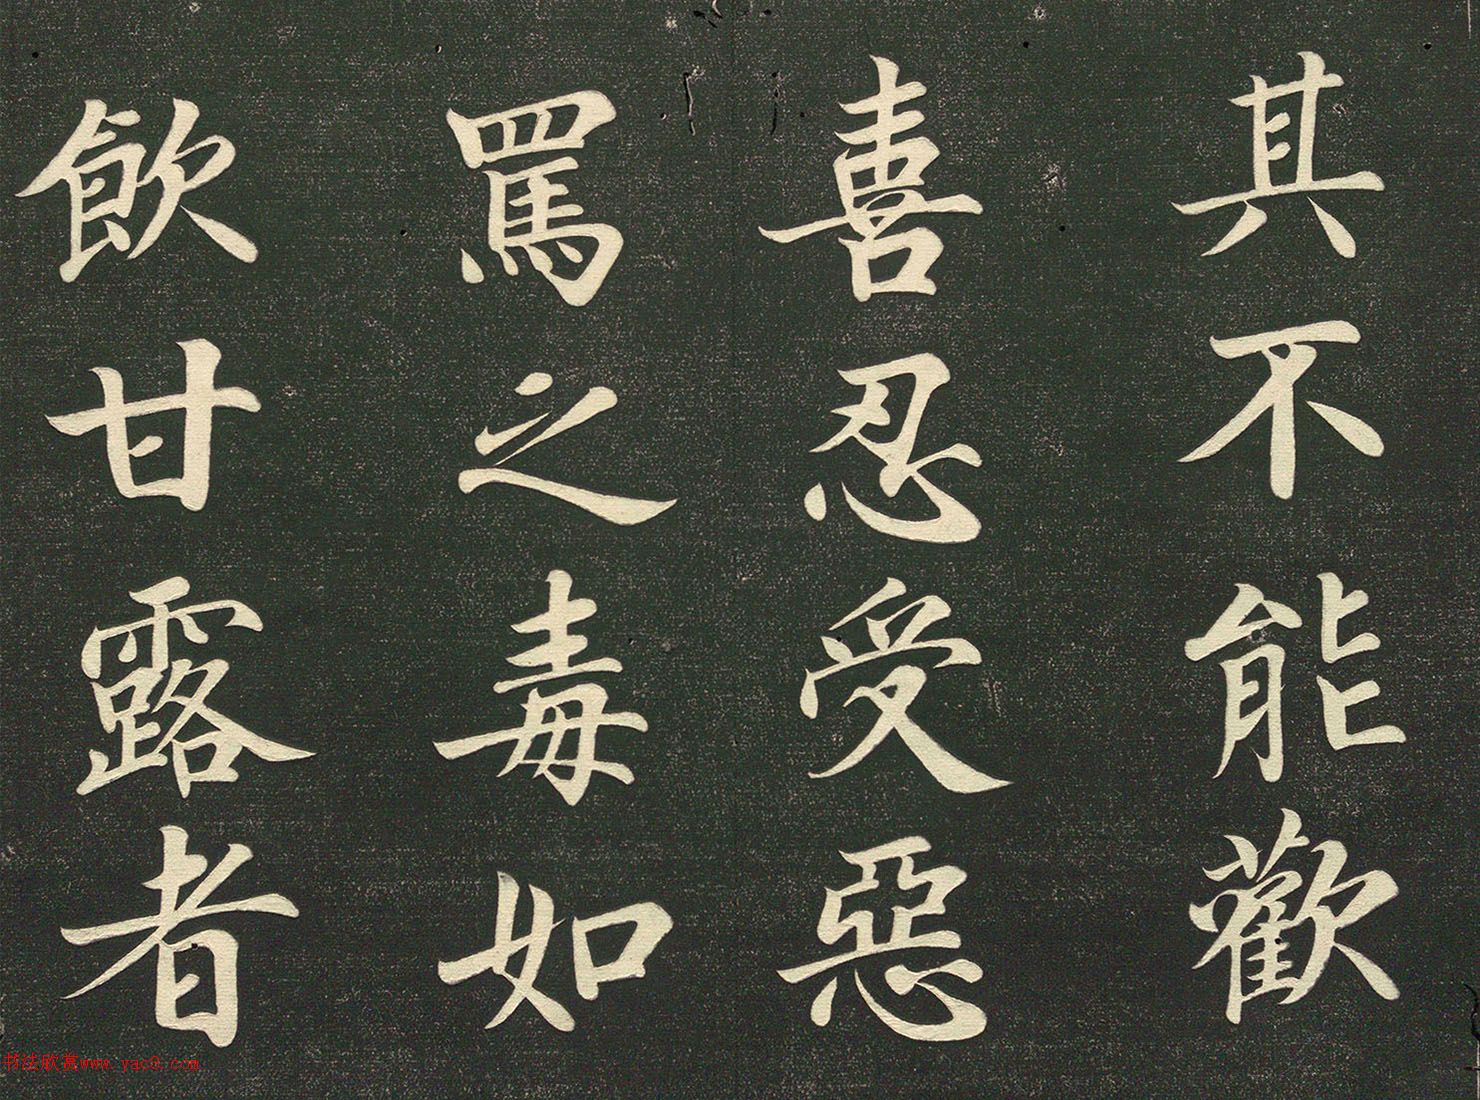 其不能歡
喜忍受惡
罵之毒如
飲甘露者
书法欣赏www.yac8.com